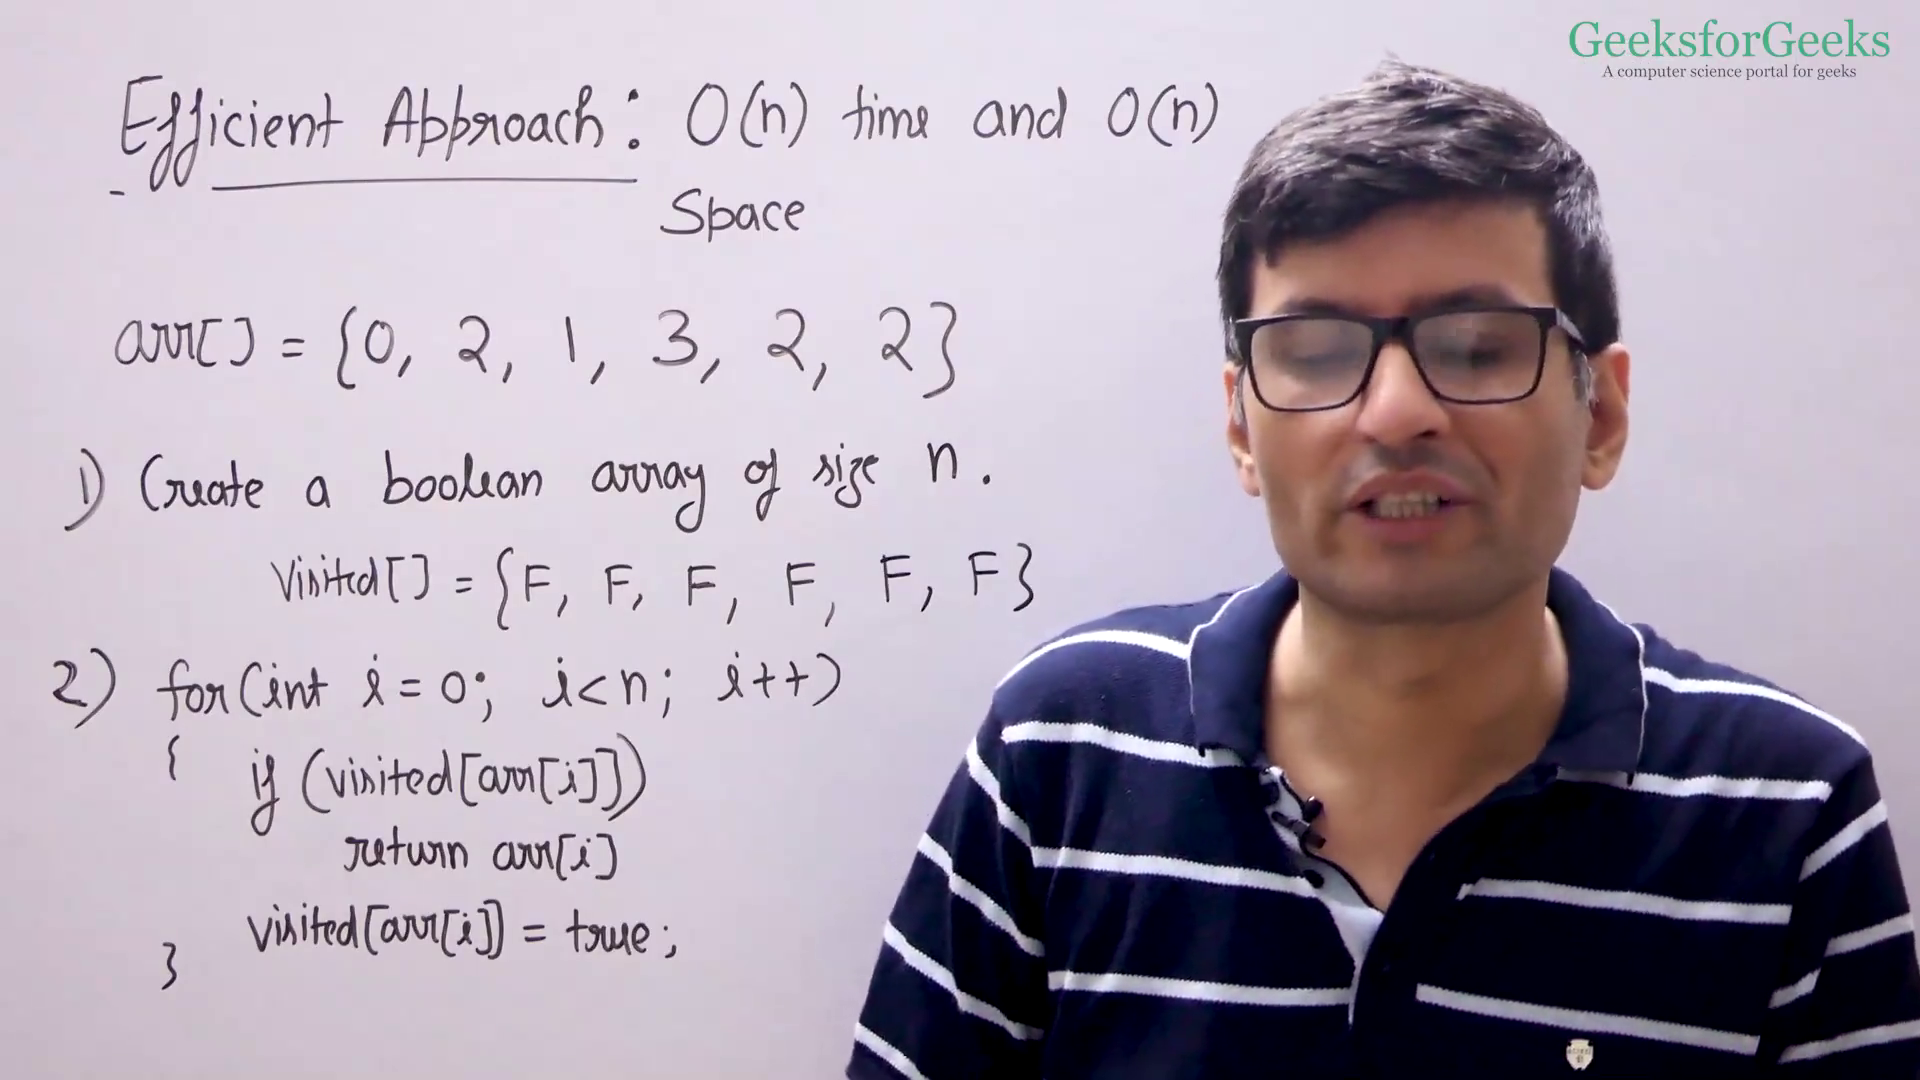 GeeksforGeeks
A computer science portal for geeks
Efficient Approach: O(n) time and O(n)
Space
arr[] = {0, 2, 1, 3, 2, 2}
1) Create a boolean array of size n.
Visited[] = {F, F, F, F, F, F}
2) for(int i=0; i<n; i++)
{ if (visited[arr[i]])
return arr[i]
visited[arr[i]] = true;
}